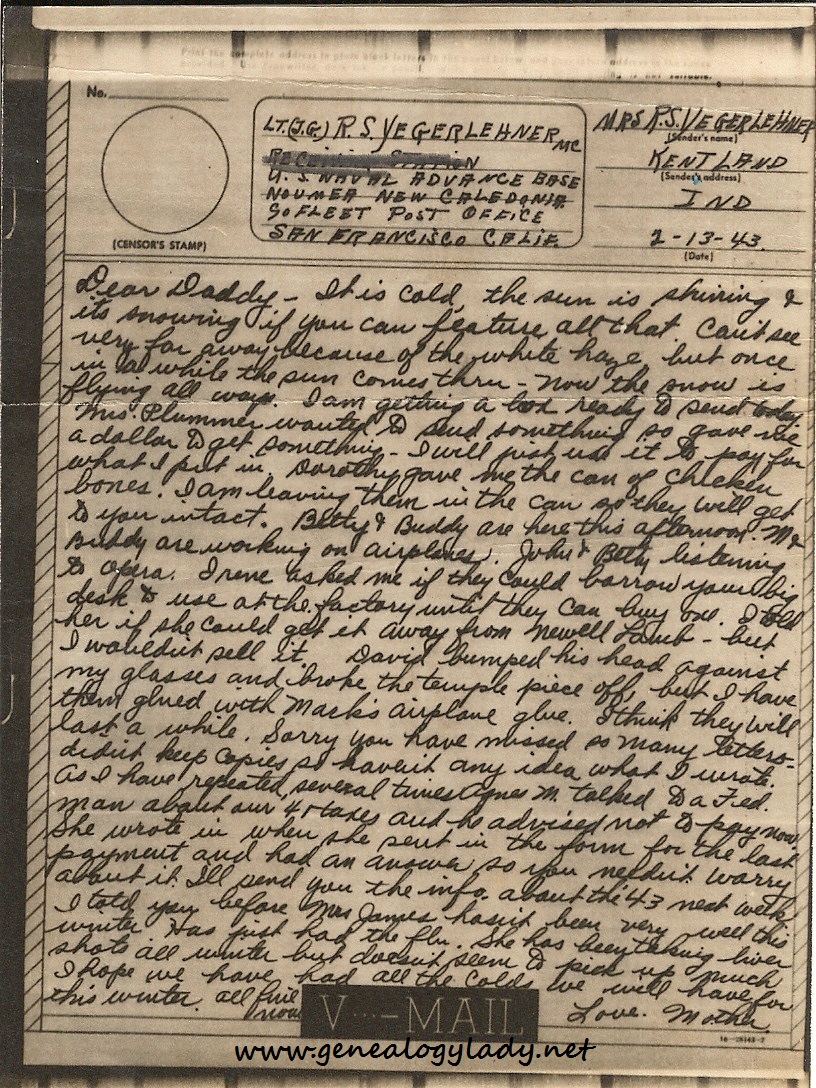 No.
(CENSOR'S STAMP)
LT.(J.G.) R.S. YEGERLEHNER MC
RECEIVING STATION
U.S. NAVAL ADVANCE BASE
NOUMEA NEW CALEDONIA
℅ FLEET POST OFFICE
SAN FRANCISCO CALIF.
MRS R.S. YEGERLEHNER
(Sender's name)
KENTLAND
(Sender's address)
IND
2-13-43
(Date)
Dear Daddy – It is cold, the sun is shining &
its snowing if you can feature all that. Can't see
very far away because of the white haze, but once
in a while the sun comes thru – now the snow is
flying all ways. I am getting a box ready to send today.
Mrs. Plummer wanted to send something so gave me
a dollar to get something – I will just use it to pay for
what I put in. Dorothy gave me the can of chicken
bones. I am leaving them in the can so they will get
to you intact. Betty & Buddy are here this afternoon. M &
Buddy are working on airplanes. John & Betty listening
to opera. Irene asked me if they could borrow your big
desk to use at the factory until they can buy one. I told
her if she could get it away from Newell Lamb – but
I wouldn't sell it. David bumped his head against
my glasses and broke the temple piece off, but I have
them glued with Mack's airplane glue. I think they will
last a while. Sorry you have missed so many letters –
didn't keep copies so haven't any idea what I wrote.
As I have repeated several times Agnes M. talked to a Fed.
man about our 41 taxes and he advised not to pay now.
She wrote in when she sent in the form for the last
payment and had an answer so you needn't worry
about it. I'll send you the info. about the 43 next week
I told you before Mrs James hasn't been very well this
winter. Has just had the flu. She has been taking liver
shots all winter but doesn't seem to pick up much
I hope we have had all the colds we will have for
this winter. all fine
now
Love. Mother.
V···–MAIL
16-28143-2
www.genealogylady.net